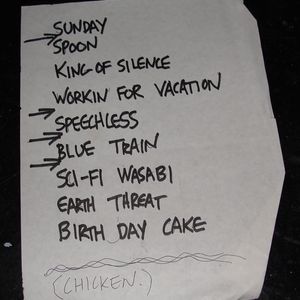 SUNDAY
SPOON
KING OF SILENCE
WORKIN FOR VACATION
SPEECHLESS
BLUE TRAIN
SCI-FI WASABI
EARTH THREAT
BIRTH DAY CAKE
(CHICKEN.)